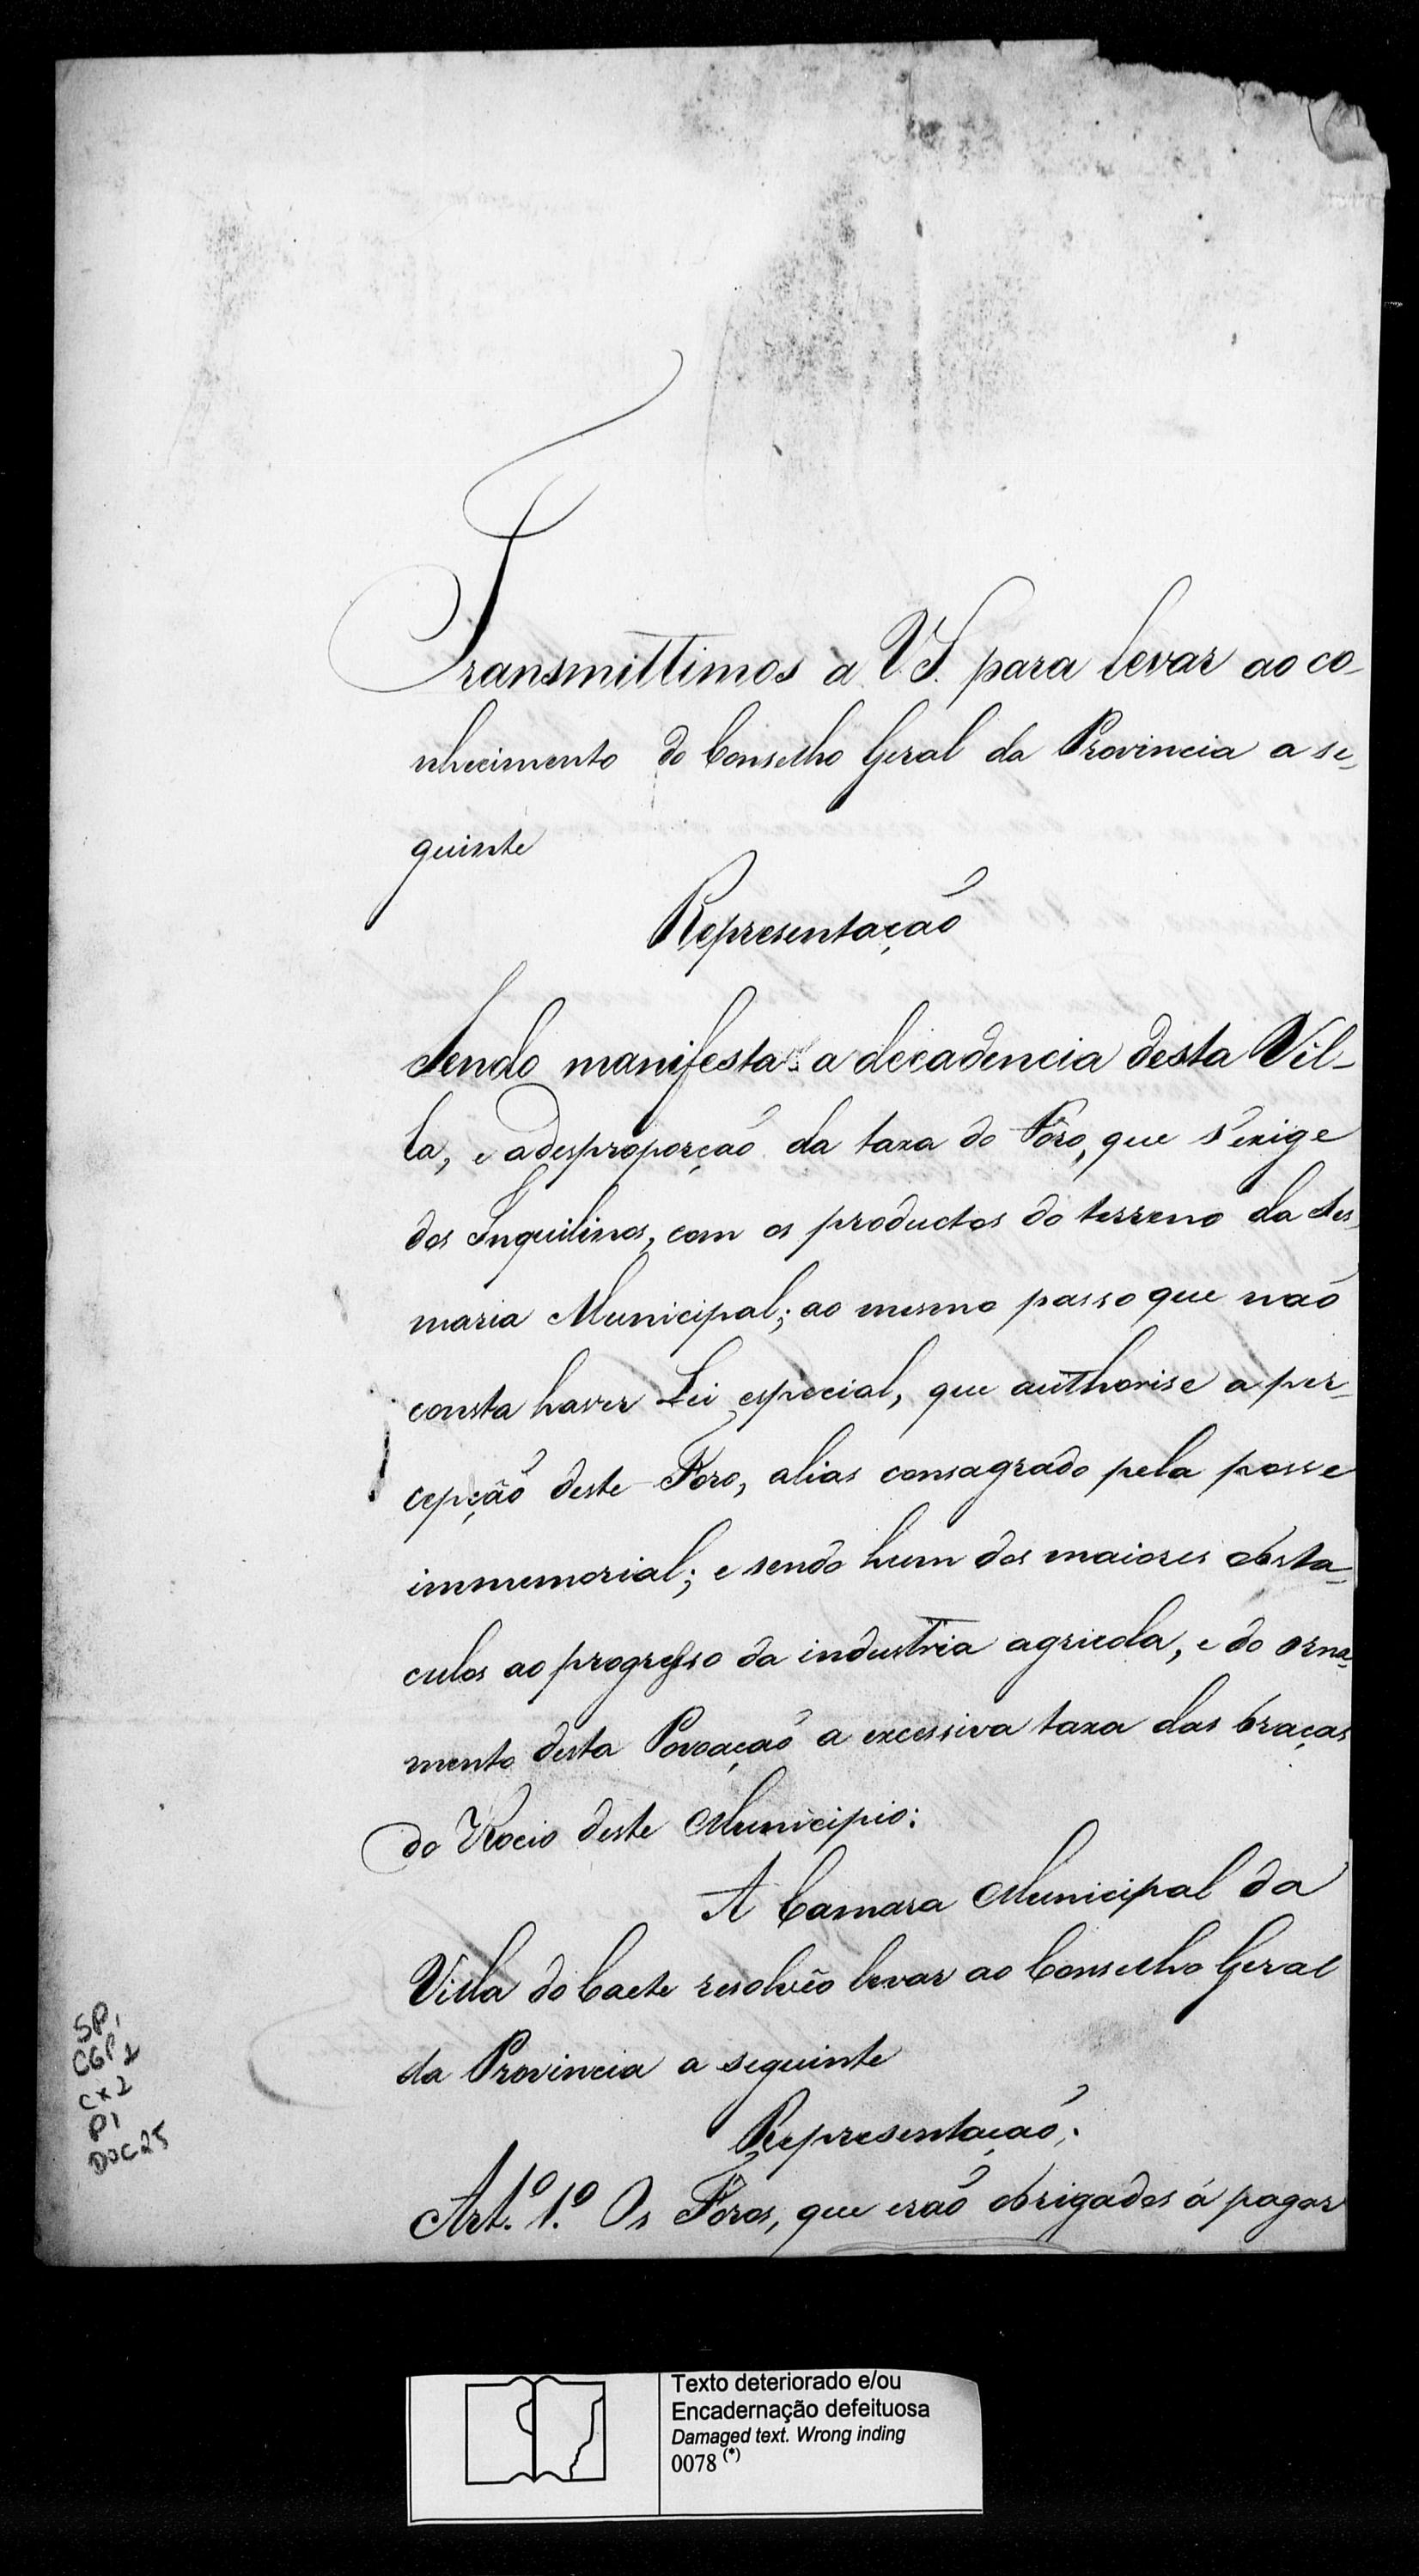 Transmittimos a V.S. para levar ao co-
nhecimento do Conselho Geral da Provincia a se-
guinte
Representação
Sendo manifesta a decadencia desta Vil-
la, e a desproporção da taxa do Fôro, que s'exige
dos Inquilinos, com os productos do terreno da Ses-
maria Municipal; ao mesmo passo que não
consta haver Lei especial, que authorise a per-
cepção deste Foro, alias consagrado pela posse
immemorial; e sendo hum dos maiores obsta-
culos ao progresso da industria agricola, e do orna-
mento desta Povoação a excessiva taxa das braças
do Rocio deste Municipio:
A Camara Municipal da
Villa do Caete resolvêo levar ao Conselho Geral
da Provincia a seguinte
Representação.
Art.º 1.º Os Foros, que erão obrigados á pagar
SP,
CGP1
CX2
P1
DOC25
Texto deteriorado e/ou
Encadernação defeituosa
Damaged text. Wrong inding
0078 (*)